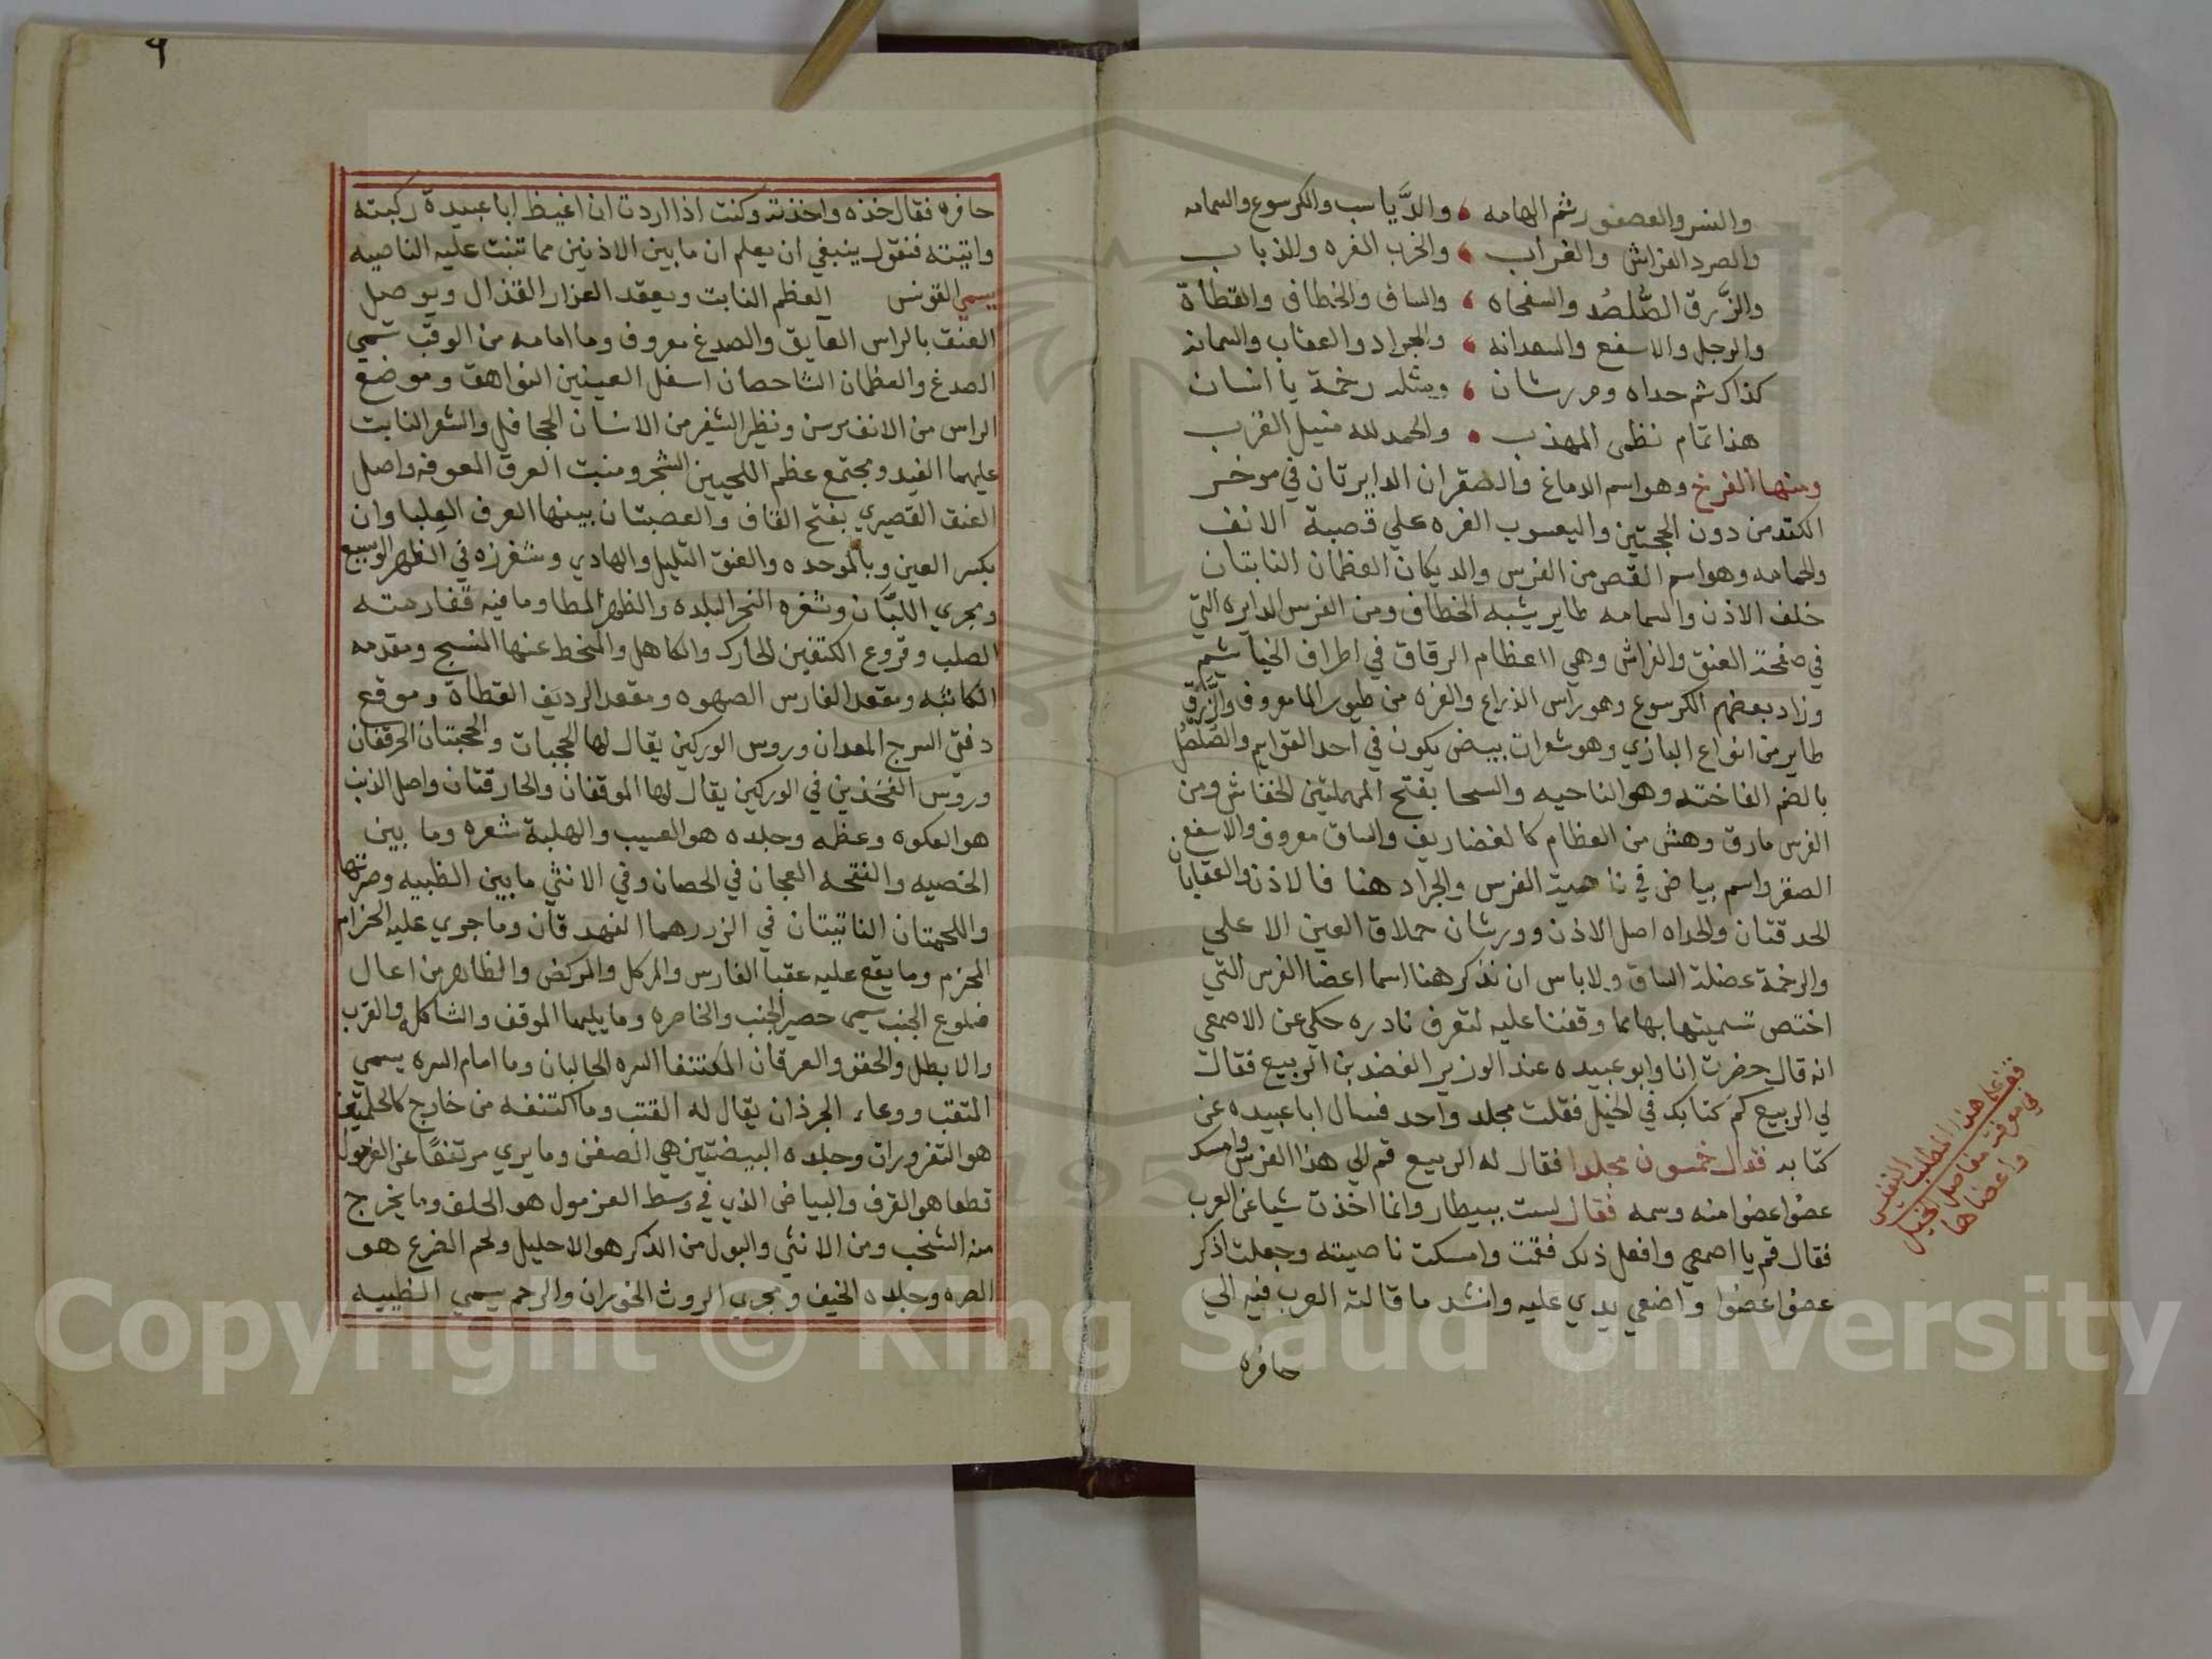 والنسر والعصفور ثم الهامه ، والدَّياسب والكرسوع والسمامه
والصرد الفراش والغراب ، والخرب الغره والذباب
والزَّرق الصُّلصُد والسفحاه ، والساق والخطاف والقطاة
والرجل والاسفع والسعدانه ، والجراد والعقاب والسمانه
كذاك ثم حداه وورشان ، ومثله رخمة يا انسان
هذا تمام نظمى المهذب . والحمد لله منيل القرب
ومنها الفرخ وهو اسم الدماغ والصقران الدايرتان في موخر
الكتد من دون الحجبتين واليعسوب الغره علي قصبة الانف
والحمامه وهو اسم القص من الفرس والديكان العظمان الناتيان
خلف الاذن والسمامه طاير يشبه الخطاف ومن الفرس الدايره التي
في صفحة العنق والفراش وهي العظام الرقاق في اطراف الخياشيم
وزاد بعضهم الكرسوع وهو راس الذراع والغره من طيور الما معروف والزَّرق
طاير من انواع البازي وهو شعرات بيض يكون في احد القوايم والصُّلصُل
بالضم الفاخته وهو الناحيه والسحا بفتح المهملتين الخفاش ومن
الفرس مارق وهش من العظام كالغضاريف والساق معروف والاسفع
الصقر واسم بياض في ناصية الفرس والجراد هنا فالاذن والعقابان
الحدقتان والحداه اصل الاذن وورشان حملاق العين الاعلي
والرخمة عضلة الساق ولا باس ان نذكر هنا اسما اعضا الفرس التي
اختص تسميتها بها مما وقفنا عليه لتعرف نادره حكي عن الاصمعي
انه قال حضرت انا وابو عبيده عند الوزير الفضد بن الربيع فقال
لي الربيع كم كتابك في الخيل فقلت مجلد واحد فسال ابا عبيده عن
كتابه فقال خمسون مجلدا فقال له الربيع قم الي هذا الفرس وامسك
عضوا عضوا منه وسمه فقال لست ببيطار وانما اخذت شيا عن العرب
فقال قم يا اصمعي وافعل ذلك فقمت وامسكت ناصيته وجعلت اذكر
عضوا عضوا واضعي يدي عليه وانشد ما قالته العرب فيه الي
حافره
قف على هذا المطلب النفيس
في معرفة مفاصل الخيل
واعضاها
٩
حافره فقال خذه واخذته وكنت اذا اردت ان اغيظ ابا عبيدة ركبته
واتيته فنقول ينبغي ان يعلم ان ما بين الاذنين مما تنبت عليه الناصيه
يسمي القونس العظم النابت ومعقد العزار القذال وموصل
العنق بالراس الفايق والصدغ معروف وما امامه من الوقب تسمي
الصدغ والعظمان الشاخصان اسفل العينين النواهق وموضع
الراس من الانف مرسن ونظير الشفر من الانسان الجحافل والشعر النابت
عليهما الفيد ومجتمع عظم اللحيين الشجر ومنبت العرف المعرفه واصل
العنق القصيري بفتح القاف والعصبتان بينهما العرف العِلبا وان
بكسر العين وبالموحده والعنق التليل والهادي ومغرزه في الظهر الوسيع
ومجري اللبان وثغره النحر البلده والظهر المطا وما فيه فقارمته
الصلب وفروع الكتفين الحارك والكاهل والمنخط عنها المنسج ومقدمه
الكاثبه ومقعد الفارس الصهوه ومقعد الرديف القطاة وموقع
دفتي السرج المعدان وروس الوركين يقال لها الحجبات والحجبتان الحرقفان
وروس الفخذين في الوركين يقال لها الموقفان والحارقتان واصل الذنب
هو العكوه وعظمه وجلده هو العسيب والهلبة شعره وما بين
الخصيه والفتحه العجان في الحصان وفي الانثي ما بين الظبيه وضرتها
واللحمتان الناتيتان في الزور هما الفهدقان وما جري عليه الحزام
المحزم وما يقع عليه عقبا الفارس والمركل والمركض والظاهر من اعال
ضلوع الجنب يسمي حصير الجنب والخاصره وما يليها الموقف والشاكله والقرب
والايطل والحقو والعرقان المكتنفا السره الحالبان وما امام السره يسمي
المتقب ووعاء الجرذان يقال له القتب وما اكتنفه من خارج كالحلمتين
هو التغروران وجلده البيضتين هي الصفن وما يري مرتفعًا عن الغرمول
قطعا هو القرف والبياض الذي في وسط الغرمول هو الحلق وما يخرج
منه الشخب ومن الانثي والبول من الذكر هو الاحليل ولحم الضرع هو
الصره وجلده الخيف ومجري الروث الخوران والرحم يسمي الظبيه
Copyright © King Saud University